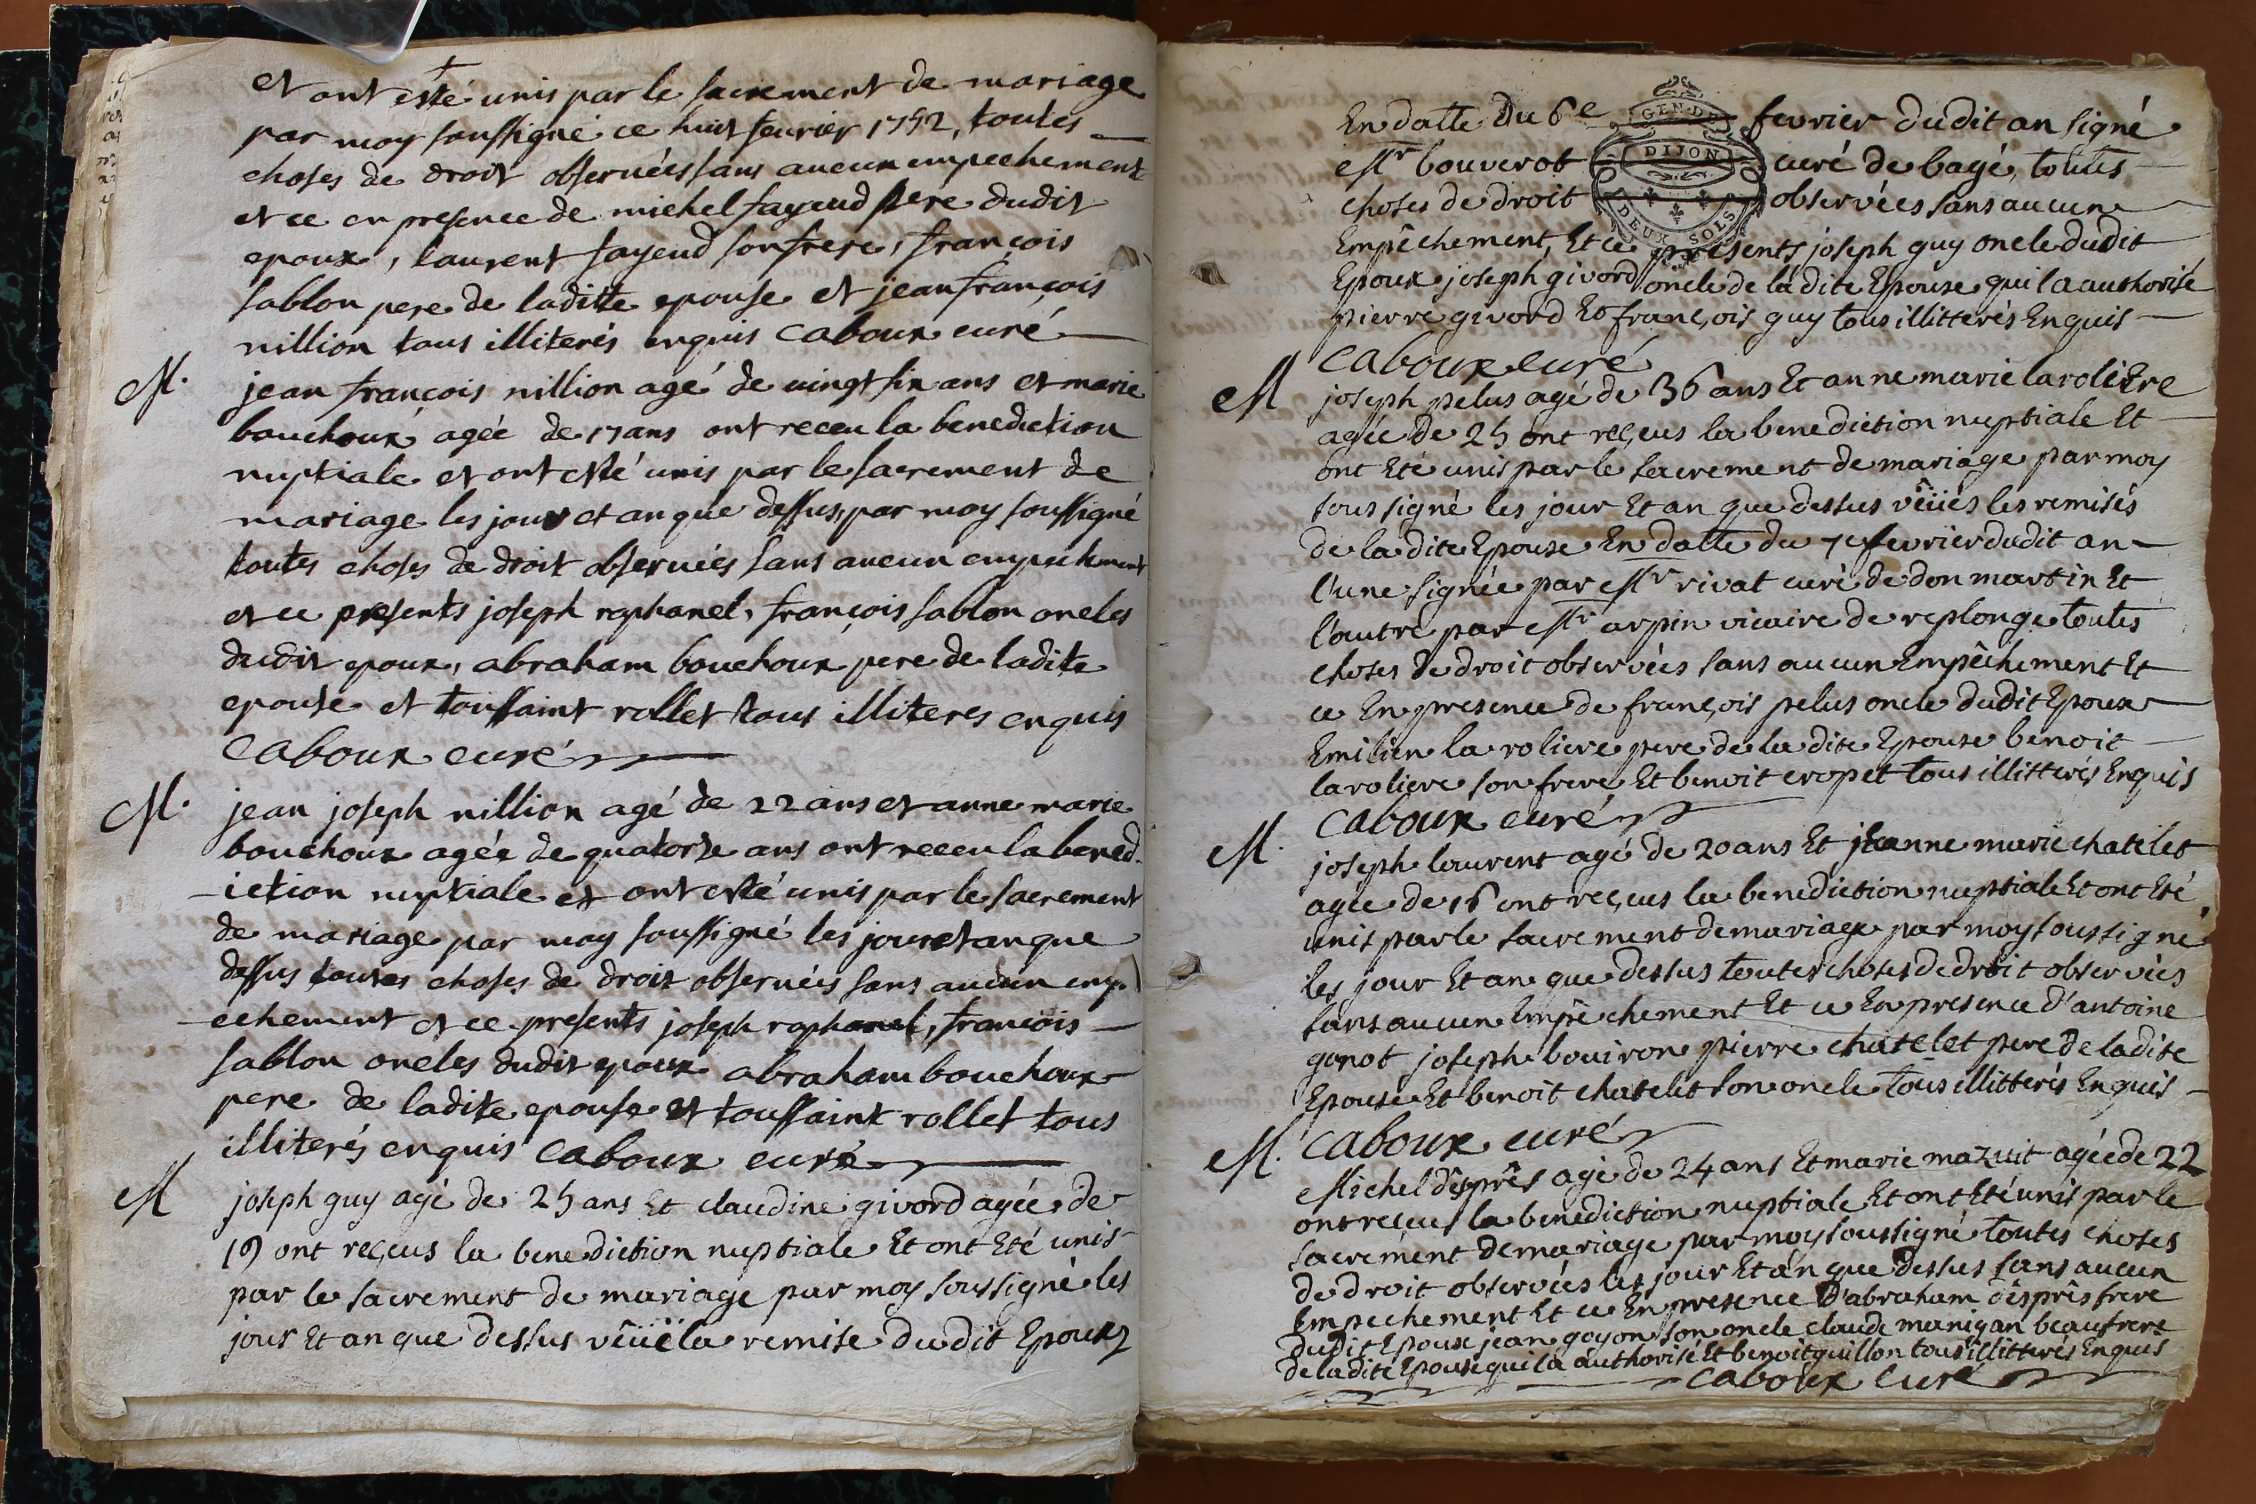 et ont esté unis par le sacrement de mariage
par moy soussigné ce huit feurier 1752, toutes
choses de droit obseruées sans aucun empechement
et ce en presence de michel fayeud pere dudit
epoux, laurent fayeud son frere, françois
sablon pere de laditte epouse et jean françois
nillion tous illiterés enquis caboux curé
M. jean françois nillion agé de uingt six ans et marie
bouchoux agée de 17 ans ont receu la benediction
nuptiale et ont esté unis par le sacrement de
mariage les jour et an que dessus, par moy soussigné
toutes choses de droit obseruées sans aucun empechement
et ce presents joseph raphanel, françois sablon oncles
dudit epoux, abraham bouchoux pere de ladite
epouse et toussaint rollet tous illiteres enquis
caboux curé
M. jean joseph nillion agé de 22 ans et anne marie
bouchoux agée de quatorze ans ont receu la bened-
-iction nuptiale et ont esté unis par le sacrement
de mariage par moy soussigné les jour et an que
dessus toutes choses de droit obseruées sans aucun emp-
-echement et ce presents joseph raphanel, françois
sablon oncles dudit epoux abraham bouchoux
pere de ladite epouse et toussaint rollet tous
illiterés enquis caboux curé
M joseph guy agé de 25 ans Et claudine givord agée de
19 ont reçus la benediction nuptiale Et ont Eté unis
par le sacrement de mariage par moy soussigné les
jour Et an que dessus vêüe la remise dudit Epoux
En datte du 6e fevrier dudit an signé
Mr bouverot curé de bagé, toutes
choses de droit observées sans aucun
Empêchement, Et ce presents joseph guy oncle dudit
Epoux joseph givord oncle de la dite Epouse qui l'a authorisé
pierre givord Et françois guy tous illitterés Enquis
GEN. DE
DIJON
DEUX SOLS
caboux curé
M joseph pelus agé de 36 ans Et anne marie laroliere
agée de 25 ont reçus la benediction nuptiale Et
ont Eté unis par le sacrement de mariage par moy
soussigné les jour Et an que dessus vêües les remises
de la dite Epouse En datte du 7e fevrier dudit an
l'une signée par Mr rivat curé de don martin Et
l'autre par Mr arpin vicaire de replonge toutes
choses de droit observées sans aucun Empêchement Et
ce En presence de françois pelus oncle dudit Epoux
Emilien la roliere pere de la dite Epouse benoit
laroliere son frere Et benoit cropet tous illitterés Enquis
caboux curé
M. joseph laurent agé de 20 ans Et jeanne marie chatelet
agée de 16 ont reçus la benediction nuptiale Et ont Eté
unis par le sacrement de mariage par moy soussigné
les jour Et an que dessus toutes choses de droit observées
sans aucun Empêchement Et ce En presence d'antoine
gonot joseph bouiron pierre chatelet pere de ladite
Epouse Et benoit chatelet son oncle tous illitterés Enquis
caboux curé
M. Michel dêsprês agé de 24 ans Et marie mazuit agée de 22
ont reçus la benediction nuptiale Et ont Eté unis par le
sacrement de mariage par moy soussigné toutes choses
de droit observées les jour Et an que dessus sans aucun
Empechement Et ce En presence d'abraham dêsprês frere
dudit Epoux jean goyon son oncle claude manigan beaufrere
de la dite Epouse qui l'a authorisé Et benoit guillon tous illitterés Enquis
caboux curé